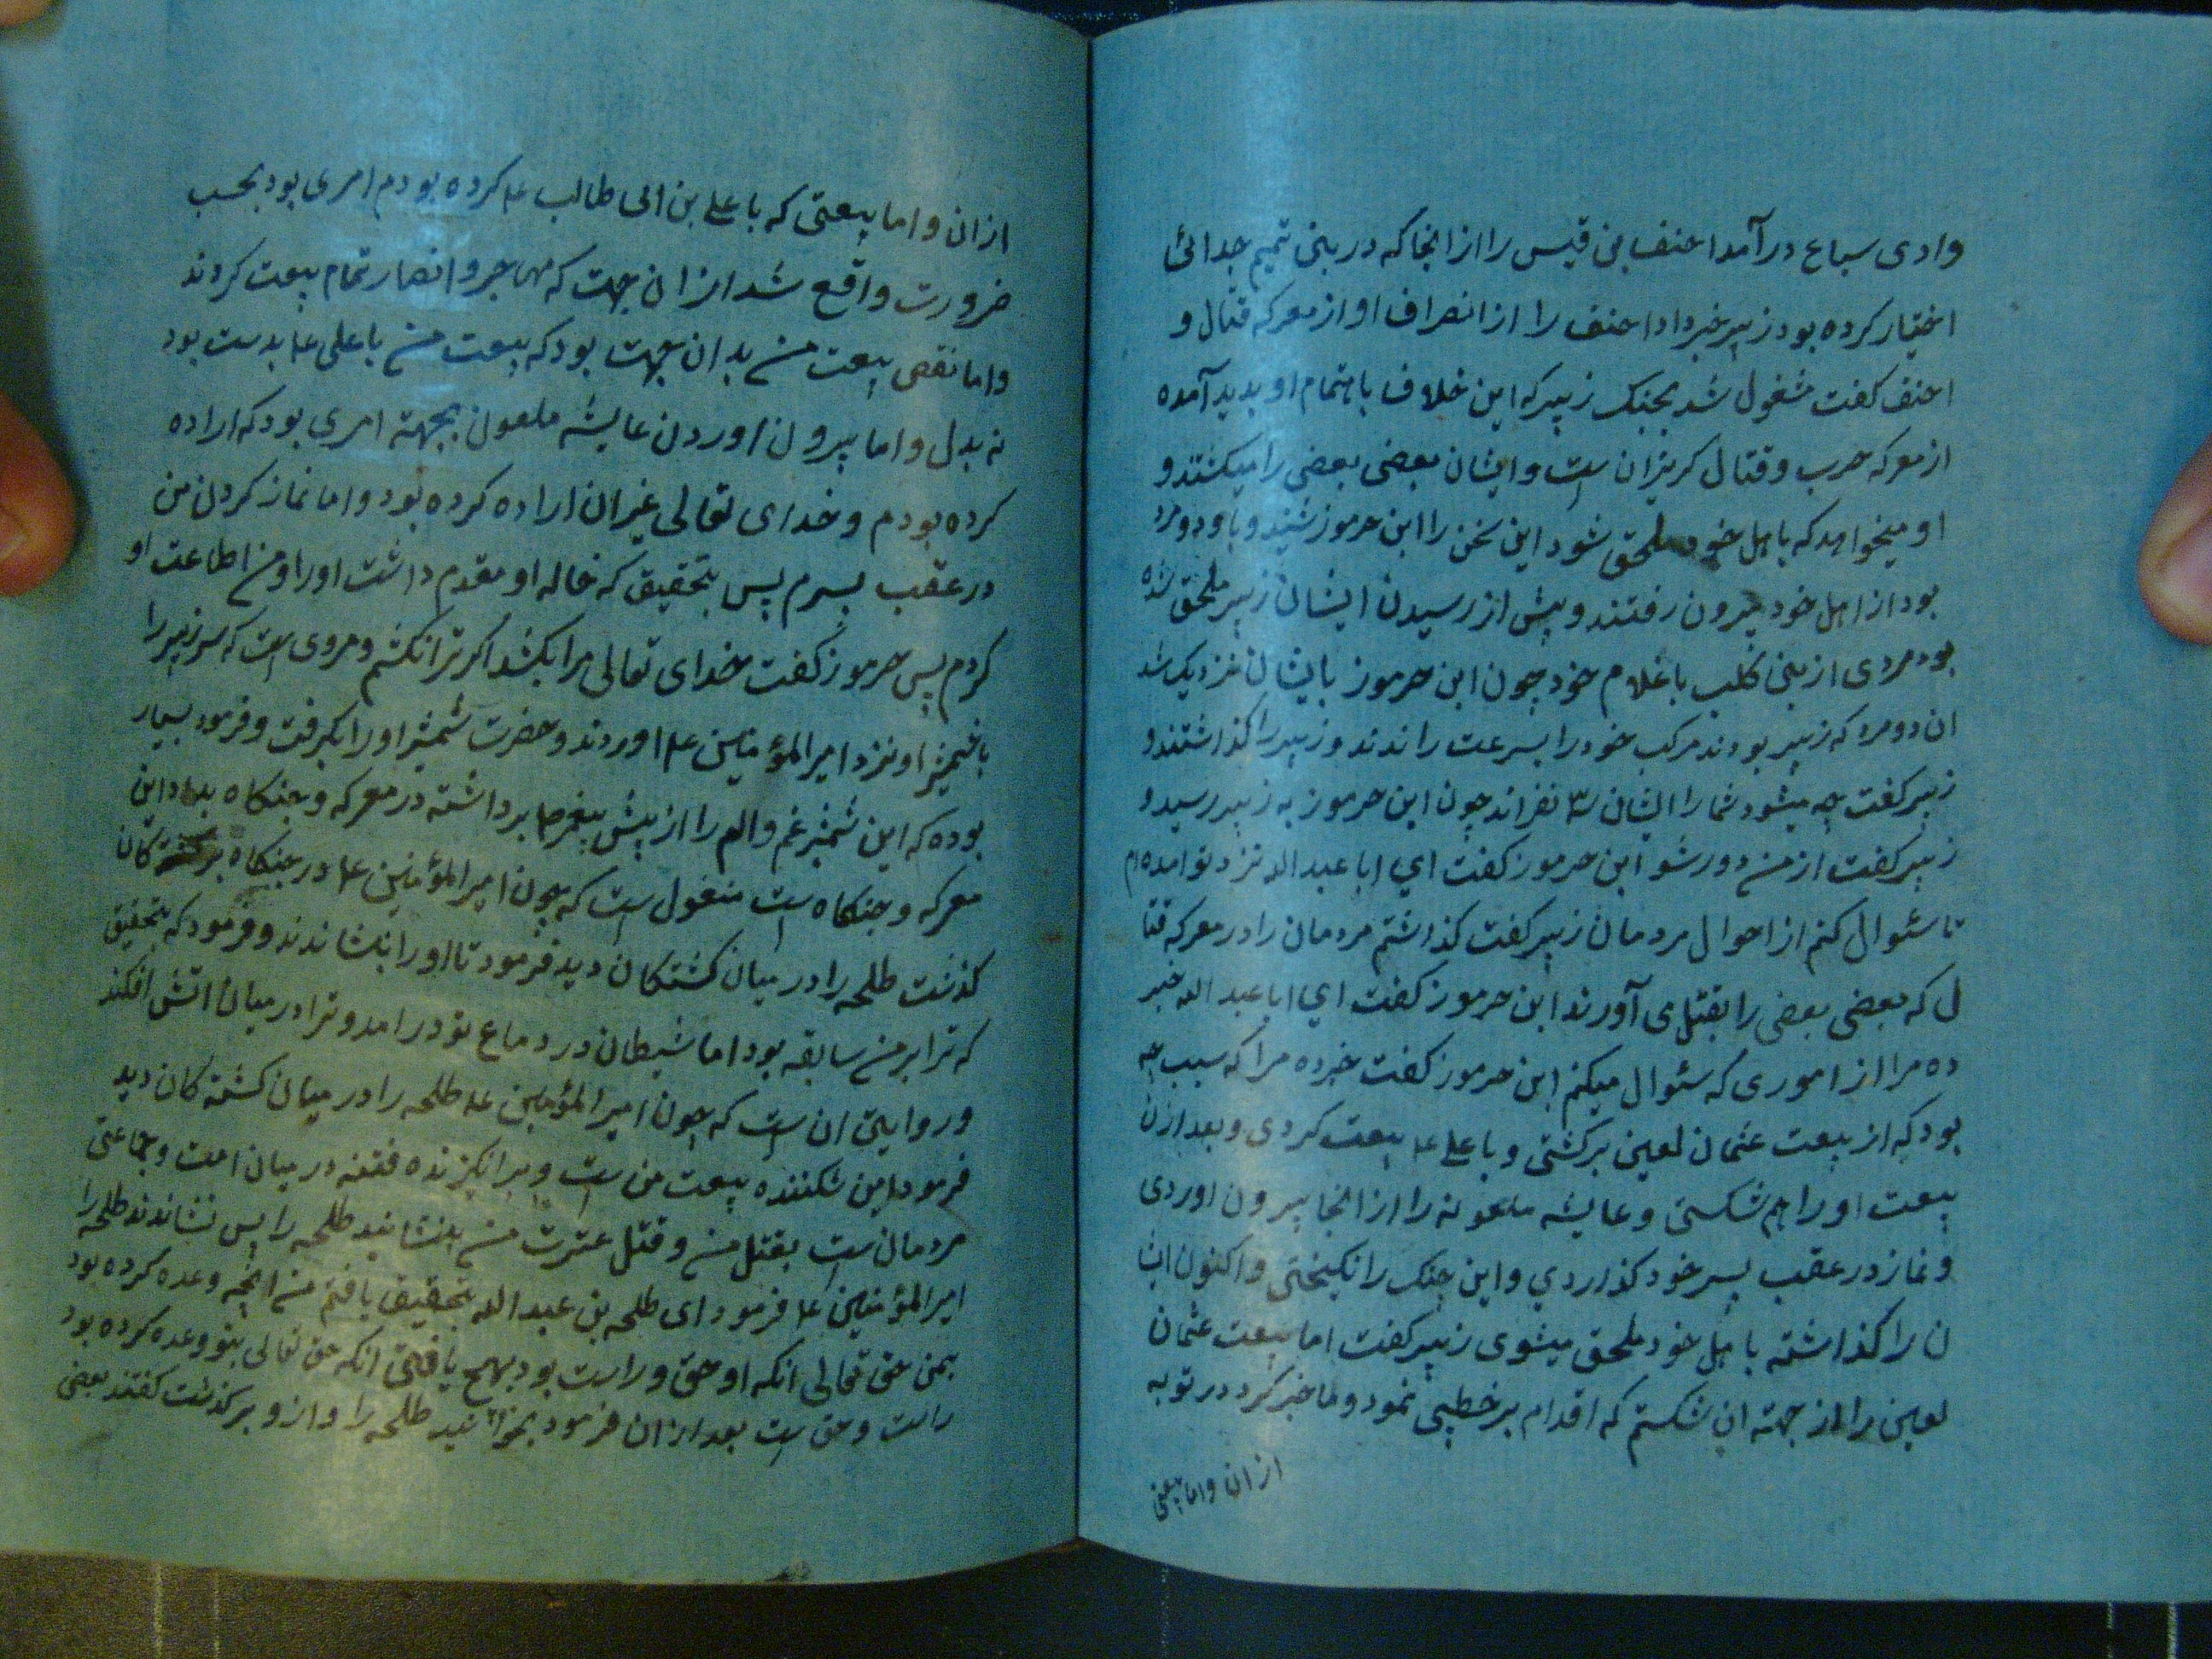 وادی سباع درآمد احنف بن قیس را از انجا که در بنی تمیم جدائی
اختیار کرده بود زبیر خبر داد احنف را از انصراف او از معرکه قتال و
احنف کفت مشغول شد بجنک زبیر که این خلاف باهتمام او پدید آمده
از معرکه حرب و قتال کریزان است و ایشان بعضی بعضی را میکشتند و
او میخواهد که باهل خود ملحق شود این سخن را ابن جرموز شنید و با و دو مرد
بود از اهل خود بیرون رفتند و پیش از رسیدن ایشان زبیر ملحق شده
بود مردی از بنی کلب با غلام خود چون ابن جرموز بایشان نزدیک شد
ان دو مرد که زبیر بودند مرکب خود را بسرعت راندند و زبیر را کذاشتند و
زبیر کفت چه میشود شما را ایشان ۳ نفراند چون ابن جرموز به زبیر رسید و
زبیر کفت از من دور شو ابن جرموز کفت ای ابا عبد الله نزد تو امده‌ام
تا سئوال کنم از احوال مردمان زبیر کفت کذاشتم مردمان را در معرکه قتا
ل که بعضی بعضی را بقتل می آورند ابن جرموز کفت ای ابا عبد الله خبر
ده مرا از اموری که سئوال میکنم ابن جرموز کفت خبر ده مرا که سبب چه
بود که از بیعت عثمان لعین برکشتی و با علی ع بیعت کردی و بعد ازن
بیعت او را هم شکستی و عایشه ملعونه را از انجا بیرون اوردی
و نماز در عقب پسر خود کذاردی و این جنک را انکیختی و اکنون ای
ن را کذاشته باهل خود ملحق میشوی زبیر کفت اما بیعت عثمان
لعین را از جهته ان شکستم که اقدام بر خطیی نمود و ما خبر کرد در توبه
از ان و اما بیعتی
از ان و اما بیعتی که با علی بن ابی طالب ع کرده بودم امری بود بحسب
ضرورت واقع شد از ان جهت که مهاجر و انصار تمام بیعت کردند
و اما نقض بیعت من بدان جهت بود که بیعت من با علی ع بدست بود
نه بدل و اما بیرون اوردن عایشه ملعون بجهته امری بود که اراده
کرده بودم و خدای تعالی غیر ان اراده کرده بود و اما نماز کردن من
در عقب پسرم پس بتحقیق که خاله او مقدم داشت او را و من اطاعت او
کردم پس جرموز کفت خدای تعالی مرا بکشد اکر ترا نکشم و مروی است که سر زبیر را
با شمشیر او نزد امیر المؤمنین ع اوردند و حضرت شمشیر او را بکرفت و فرمود بسیار
بوده که این شمشیر غم و الم را از پیش پیغمبر ص برداشته در معرکه و جنکاه
معرکه و جنکاه است منقول است که چون امیر المؤمنین ع در جنکاه بر کشتکان
کذشت طلحه را در میان کشتکان دید فرمود تا او را بنشاندند و فرمود که بتحقیق
که ترا بر من سابقه بود اما شیطان در دماغ تو در امد و ترا در میان اتش افکند
و روایتی ان است که چون امیر المؤمنین ع طلحه را در میان کشته کان دید
فرمود این شکننده بیعت من است و برانکیزنده فتنه در میان امت و جماعتی
مردمان است بقتل من و قتل عترت من بنشانید طلحه را پس نشاندند طلحه را
امیر المؤمنین ع فرمود ای طلحه بن عبد الله بتحقیق یافتم من انچه وعده کرده بود
بمن حق تعالی انکه او حق و راست بود بهیچ یافتی انکه حق تعالی بتو وعده کرده بود
راست و حق است بعد از ان فرمود بخوابانید طلحه را و از و برکذشت کفتند بعضی